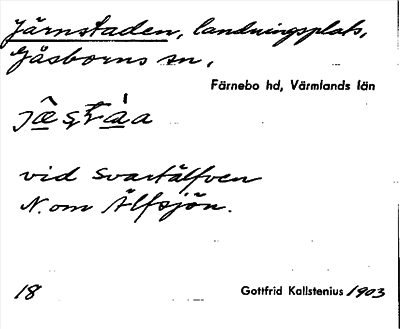 Järnstaden, landningsplats,
Gåsborns sn,
Färnebo hd, Värmlands län
vid Svartälfven
N. om Älfsjön.
18
Gottfrid Kallstenius 1903